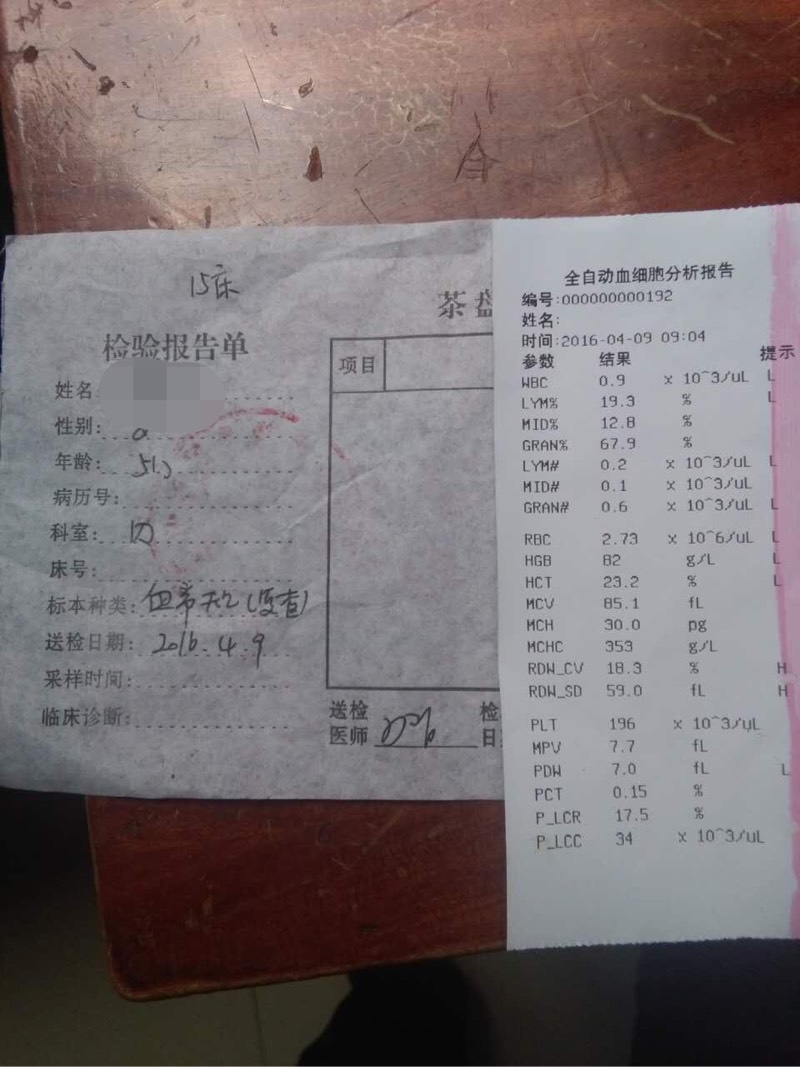 15床
检验报告单
姓名
性别:
年龄: 51岁
病历号:
科室: 内
床号:
标本种类: 血常规(复查)
送检日期: 2016.4.9
采样时间:
临床诊断:
茶盘
项目
送检
医师
检
日
全自动血细胞分析报告
编号:000000000192
姓名:
时间:2016-04-09 09:04
参数 结果 提示
WBC 0.9 x 10^3/uL L
LYM% 19.3 % L
MID% 12.8 %
GRAN% 67.9 %
LYM# 0.2 x 10^3/uL L
MID# 0.1 x 10^3/uL
GRAN# 0.6 x 10^3/uL L
RBC 2.73 x 10^6/uL L
HGB 82 g/L L
HCT 23.2 % L
MCV 85.1 fL
MCH 30.0 pg
MCHC 353 g/L
RDW_CV 18.3 % H
RDW_SD 59.0 fL H
PLT 196 x 10^3/uL
MPV 7.7 fL
PDW 7.0 fL L
PCT 0.15 %
P_LCR 17.5 %
P_LCC 34 x 10^3/uL